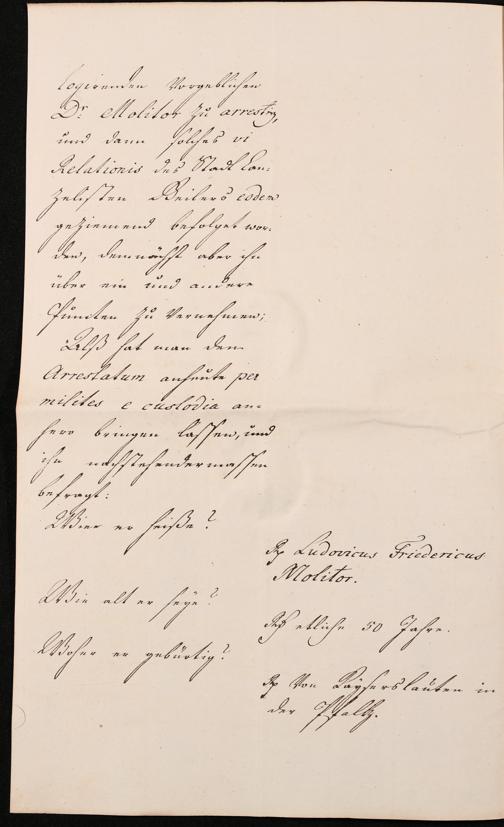 logirenden Vorgeblichen
Dr. Molitor zu arrestiren,
und dann solches vi
Relationis des Stadt Can-
zelisten Beilers eodem
geziemend befolget wor-
den, demnächst aber ihn
über ein und andere
Puncten zu Vernehmen;
Alß hat man den
Arrestatum anheute per
milites e custodia an-
hero bringen lassen, und
ihn nachstehendermassen
befragt:
Wier er heiße?
Rp Ludovicus Friedericus
Molitor.
Wie alt er seye?
Rp etliche 50 Jahre.
Woher er gebürtig?
Rp Von Kayserslautern in
der Pfaltz.